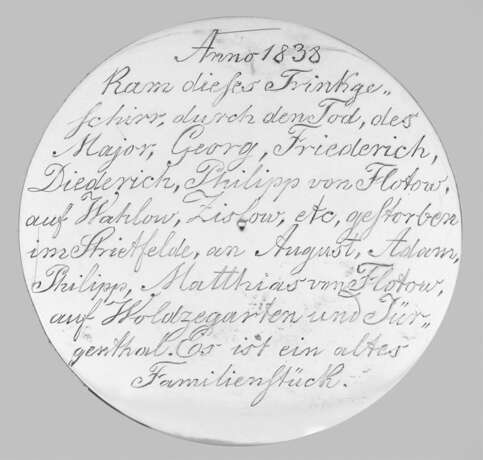 Anno 1838
Kam dieses Trinkge„
schirr, durch den Tod, des
Major, Georg, Friederich,
Diederich, Philipp von Flotow,
auf Wahlow, Zislow, etc, gestorben
im Strietfelde, an August, Adam,
Philipp, Matthias von Flotow,
auf Woldzegarten und Jür„
genthal. Es ist ein altes
Familienstück.